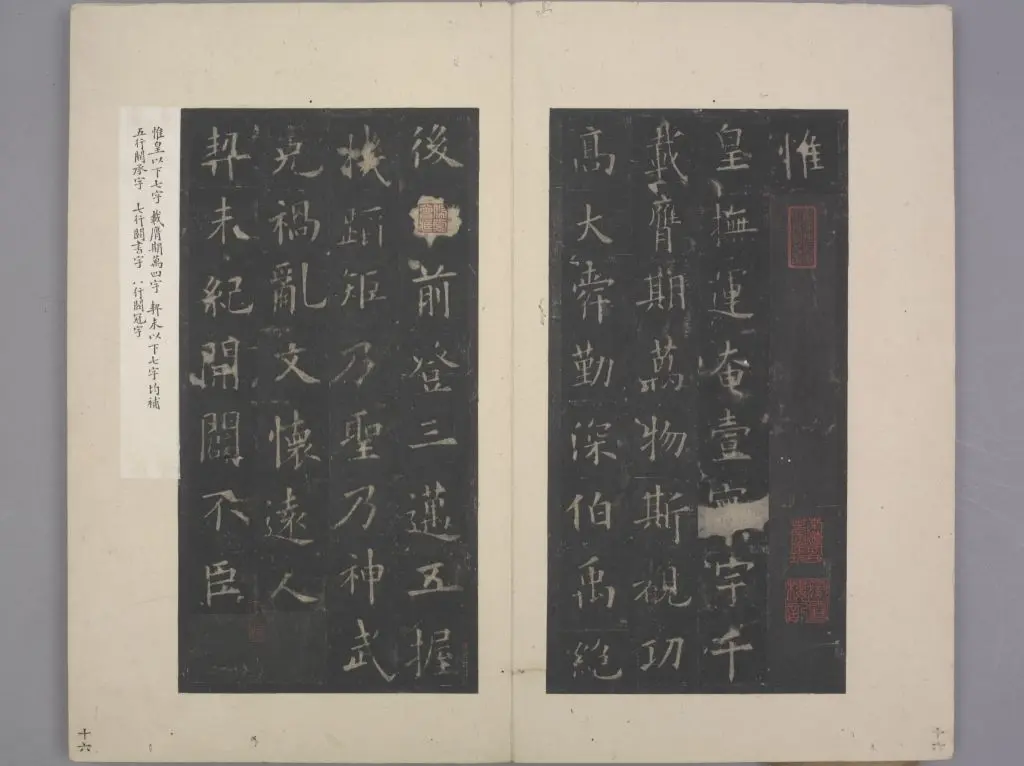 惟
皇撫運奄壹寰宇千
載膺期萬物斯覩功
高大舜勤深伯禹絶
後前登三邁五握
機蹈矩乃聖乃神武
克禍亂文懷遠人
契未紀開闢不臣
惟皇以下七字 載膺期萬四字 契未以下七字均補
五行闕承字 七行闕書字 八行闕冠字
十六
十六